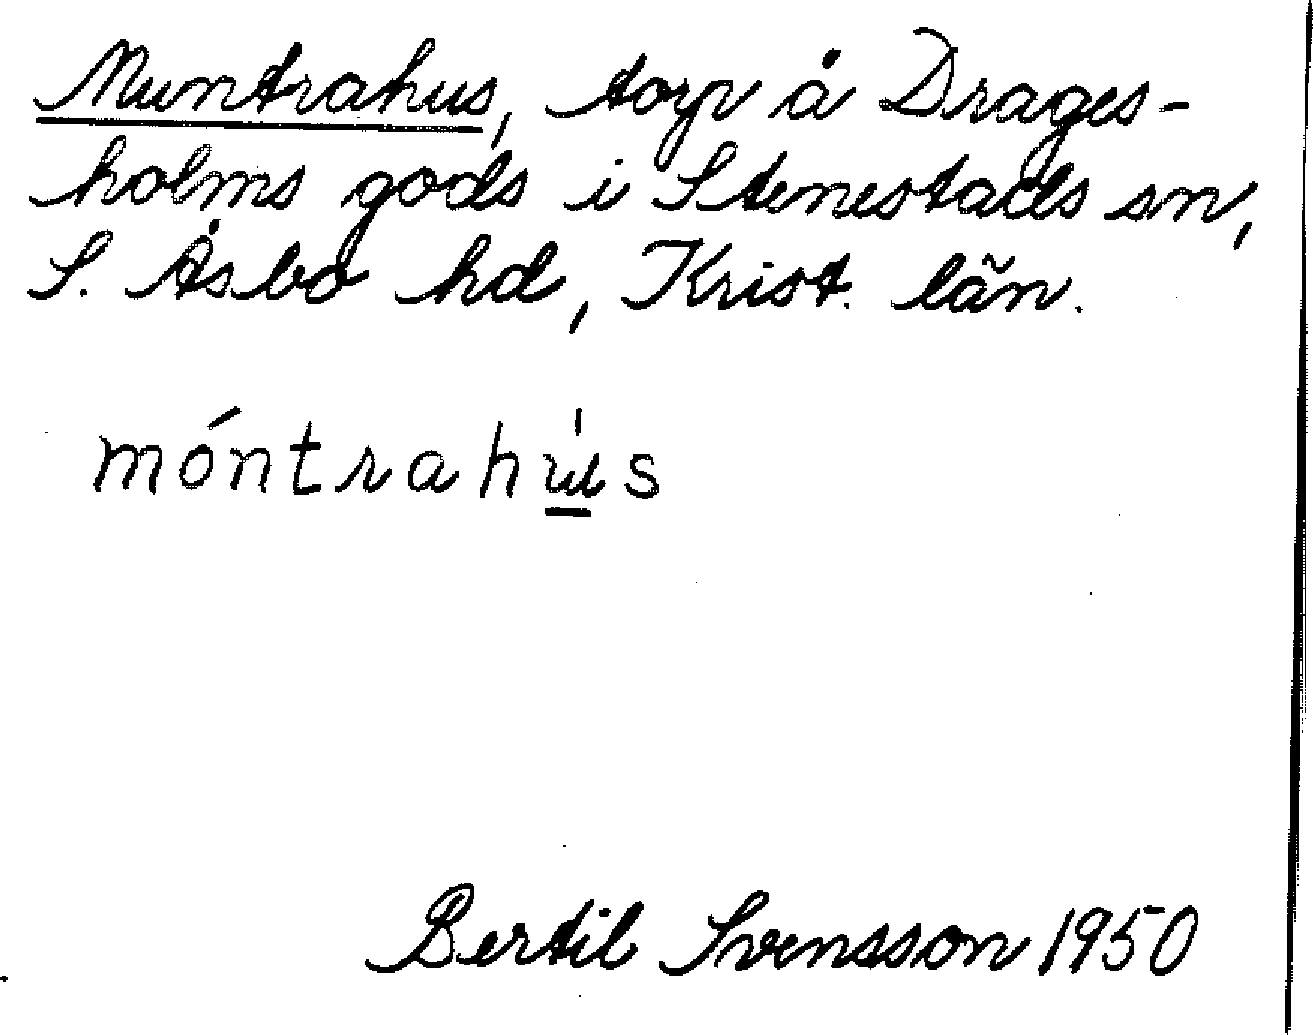 Muntrahus, torp å Drages-
holms gods i Stenestads sn,
S. Åsbo hd, Krist. län.
móntrahu̲̍s
Bertil Svensson 1950